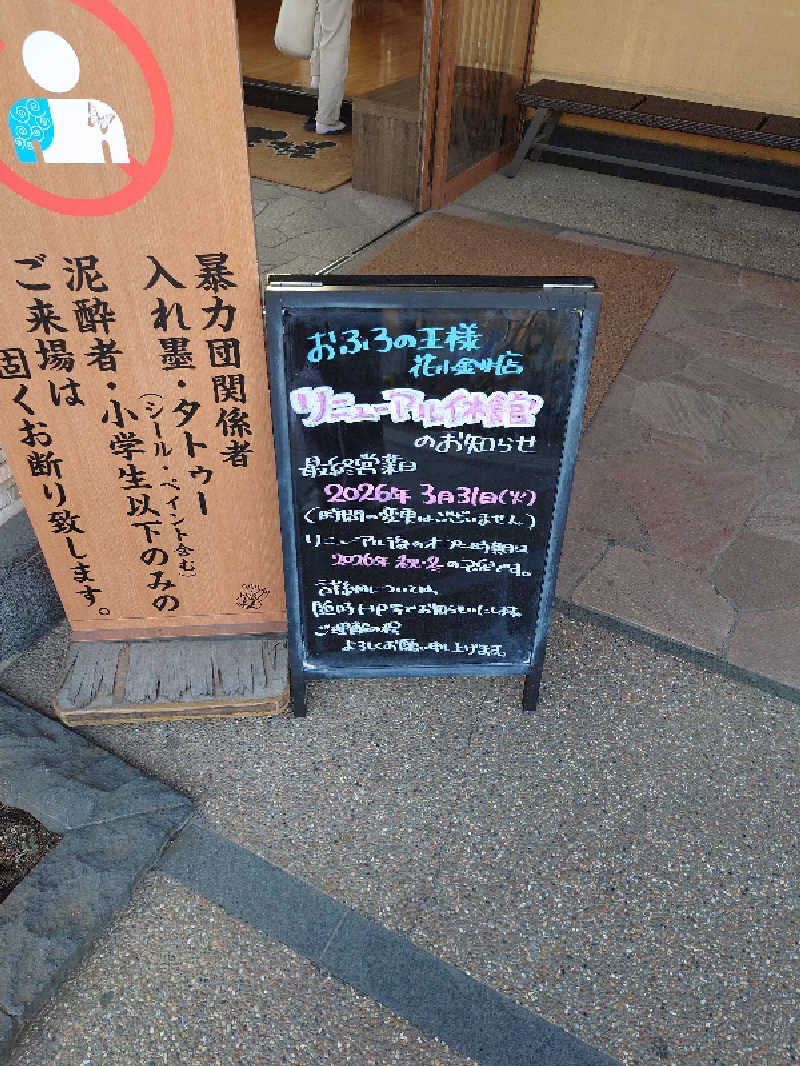 暴力団関係者
入れ墨・タトゥー
(シール・ペイント含む)
泥酔者・小学生以下のみの
ご来場は
固くお断り致します。
おふろの王様
花小金井店
リニューアル休館
のお知らせ
最終営業日
2026年3月31日(火)
(時間の変更はございません)
リニューアル後のオープン時期は
2026年 秋・冬の予定です。
詳細については、
随時HP等でお知らせいたします。
ご理解の程
よろしくお願い申し上げます。